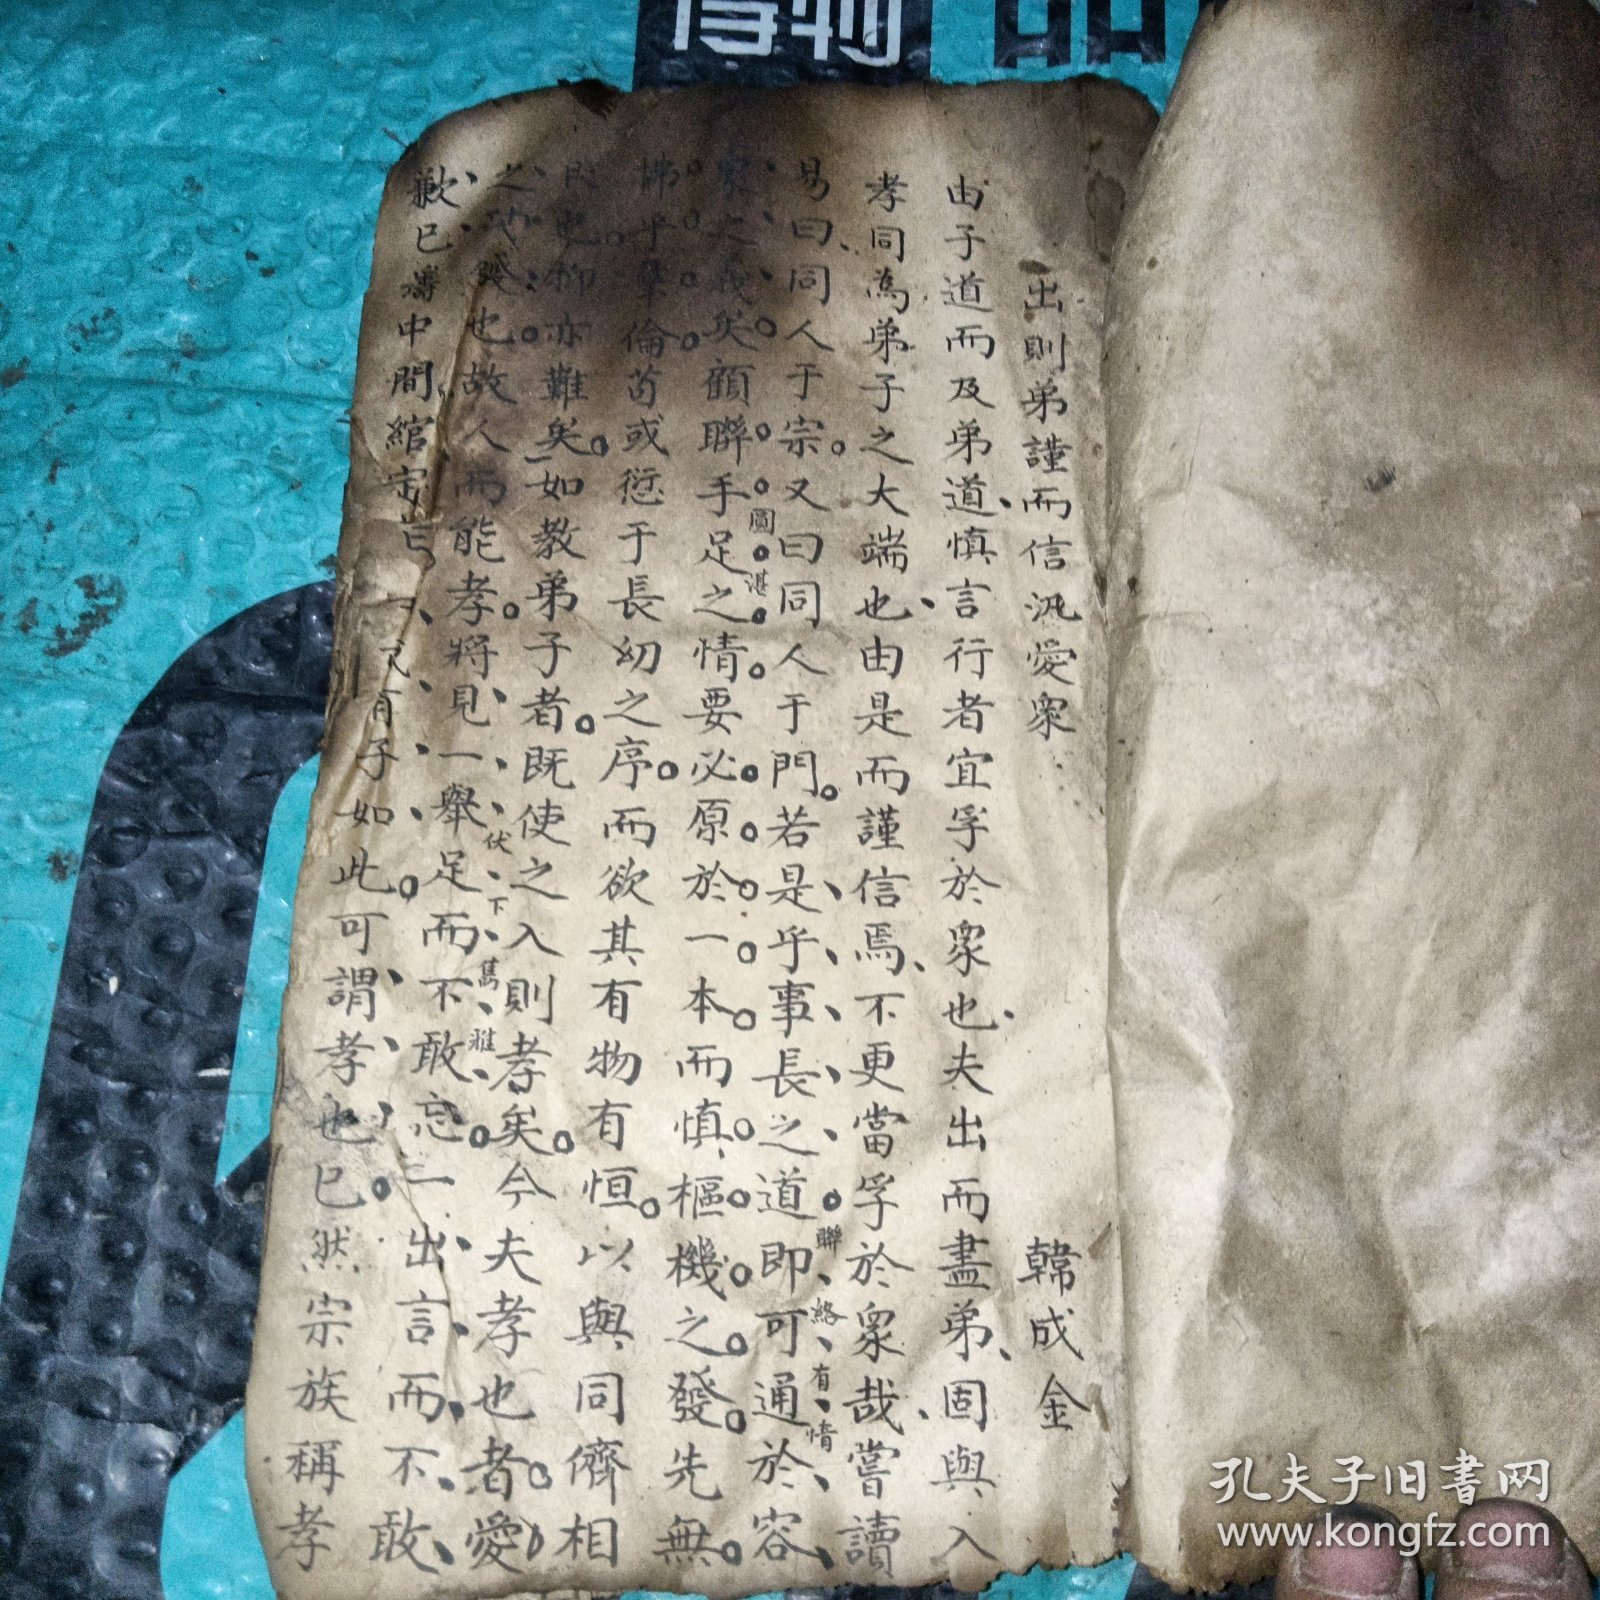 博物
出則弟謹而信汎愛衆
韓成金
由子道而及弟道慎言行者宜孚於衆也夫出而盡弟固與入
孝同為弟子之大端也由是而謹信焉不更當孚於衆哉嘗讀
易曰同人于宗又曰同人于門若是乎事長之道即可通於容
聯絡有情
衆之義矣顧聯手足之情要必原於一本而慎樞機之發先無
圓湛
拂乎倫苟或愆于長幼之序而欲其有物有恒以與同儕相
也抑亦難矣如教弟子者既使之入則孝矣今夫孝也者愛
之也故人而能孝將見一舉足而不敢忘一出言而不敢
伏下雋雅
歉已 中間綰定 有子如此可謂孝也已然宗族稱孝
孔夫子旧書网
www.kongfz.com